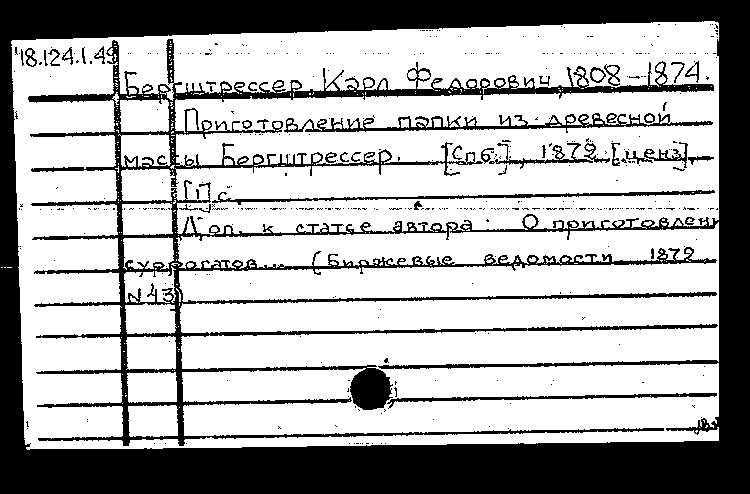 18.124.1.49
Бергштрессер, Карл Федорович, 1808-1874.
Приготовление папки из древесной
массы Бергштрессер. [Спб.], 1872 [ценз].
[1] с.
Доп. к статье автора: О приготовлени
суррогатов... (Биржевые ведомости 1872
N 43)